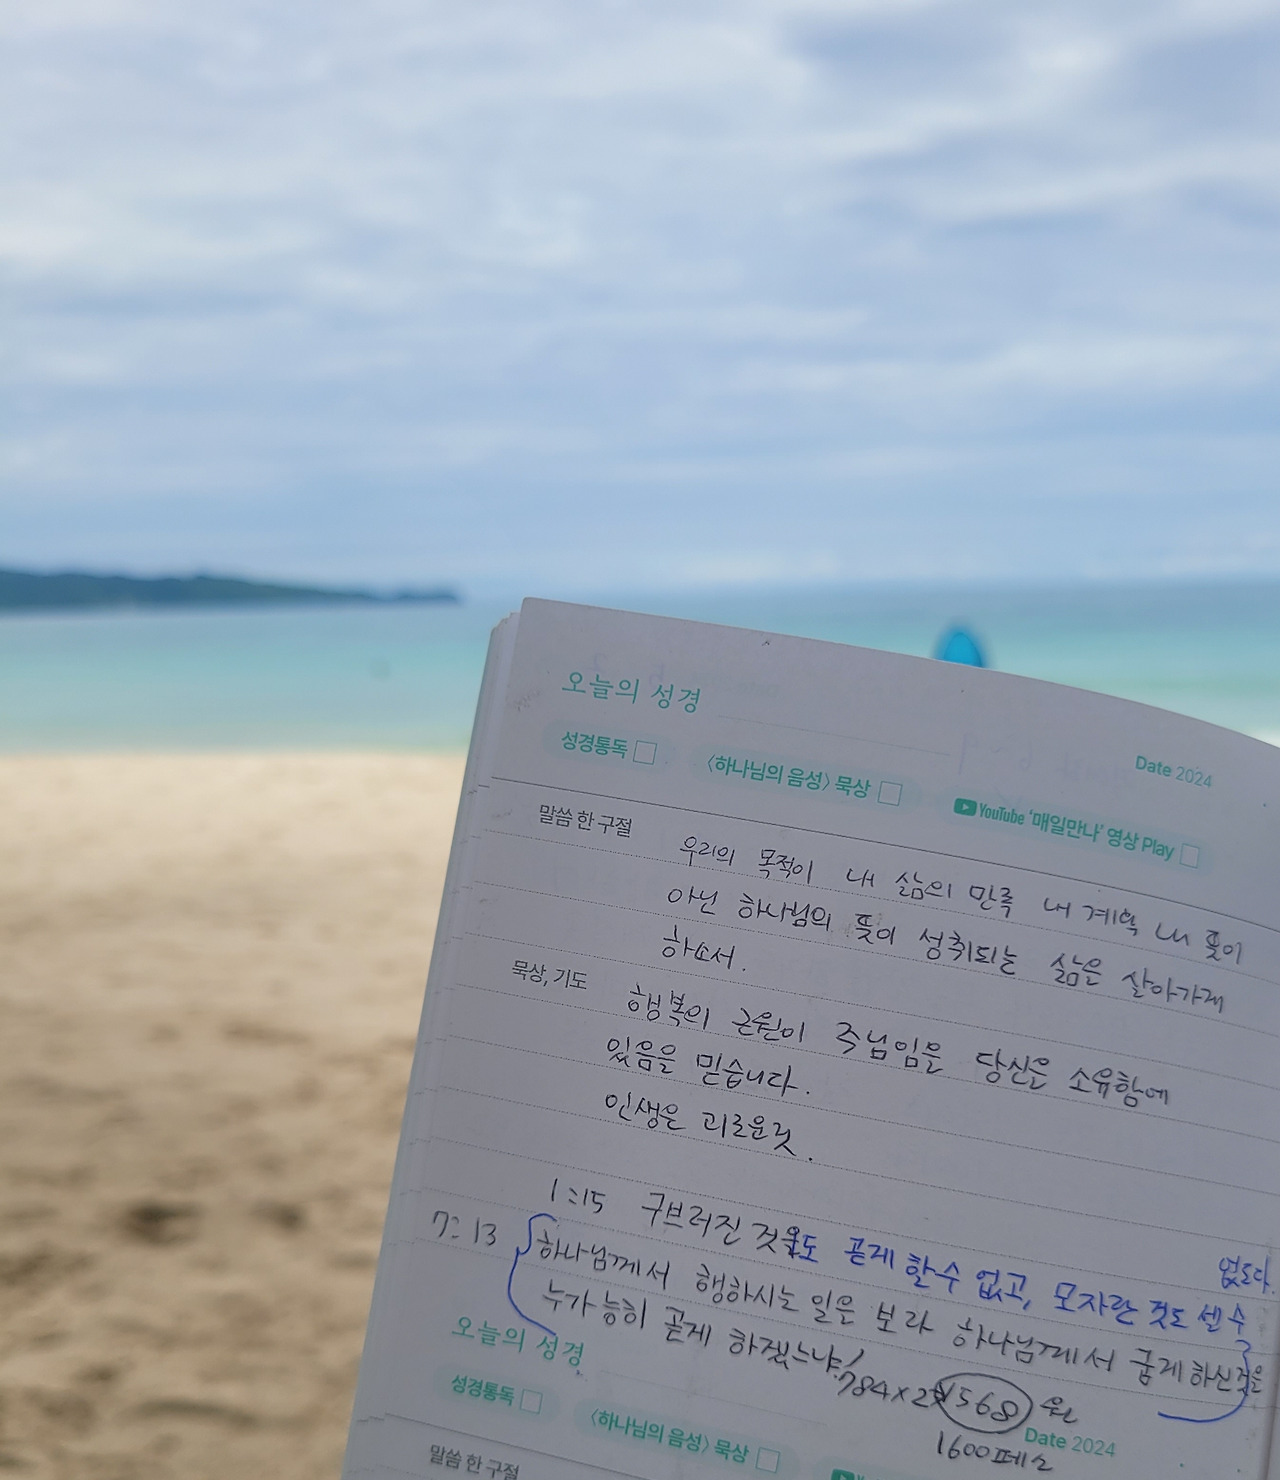 오늘의 성경
Date 2024
성경통독 〈하나님의 음성〉 묵상 YouTube '매일만나' 영상 Play
말씀 한 구절
우리의 목적이 내 삶의 만족 내 계획 내 뜻이
아닌 하나님의 뜻이 성취되는 삶을 살아가게
하소서.
묵상, 기도
행복의 근원이 주님임을 당신을 소유함에
있음을 믿습니다.
인생은 괴로운 것.
1:15 구브러진 것을도 곧게 할수 없고, 모자란 것도 셀 수
없도다.
7:13 하나님께서 행하시는 일을 보라 하나님께서 굽게 하신것을
누가 능히 곧게 하겠느냐!
784×2 1568 원
1600페소
오늘의 성경
Date 2024
성경통독 〈하나님의 음성〉 묵상
말씀 한 구절